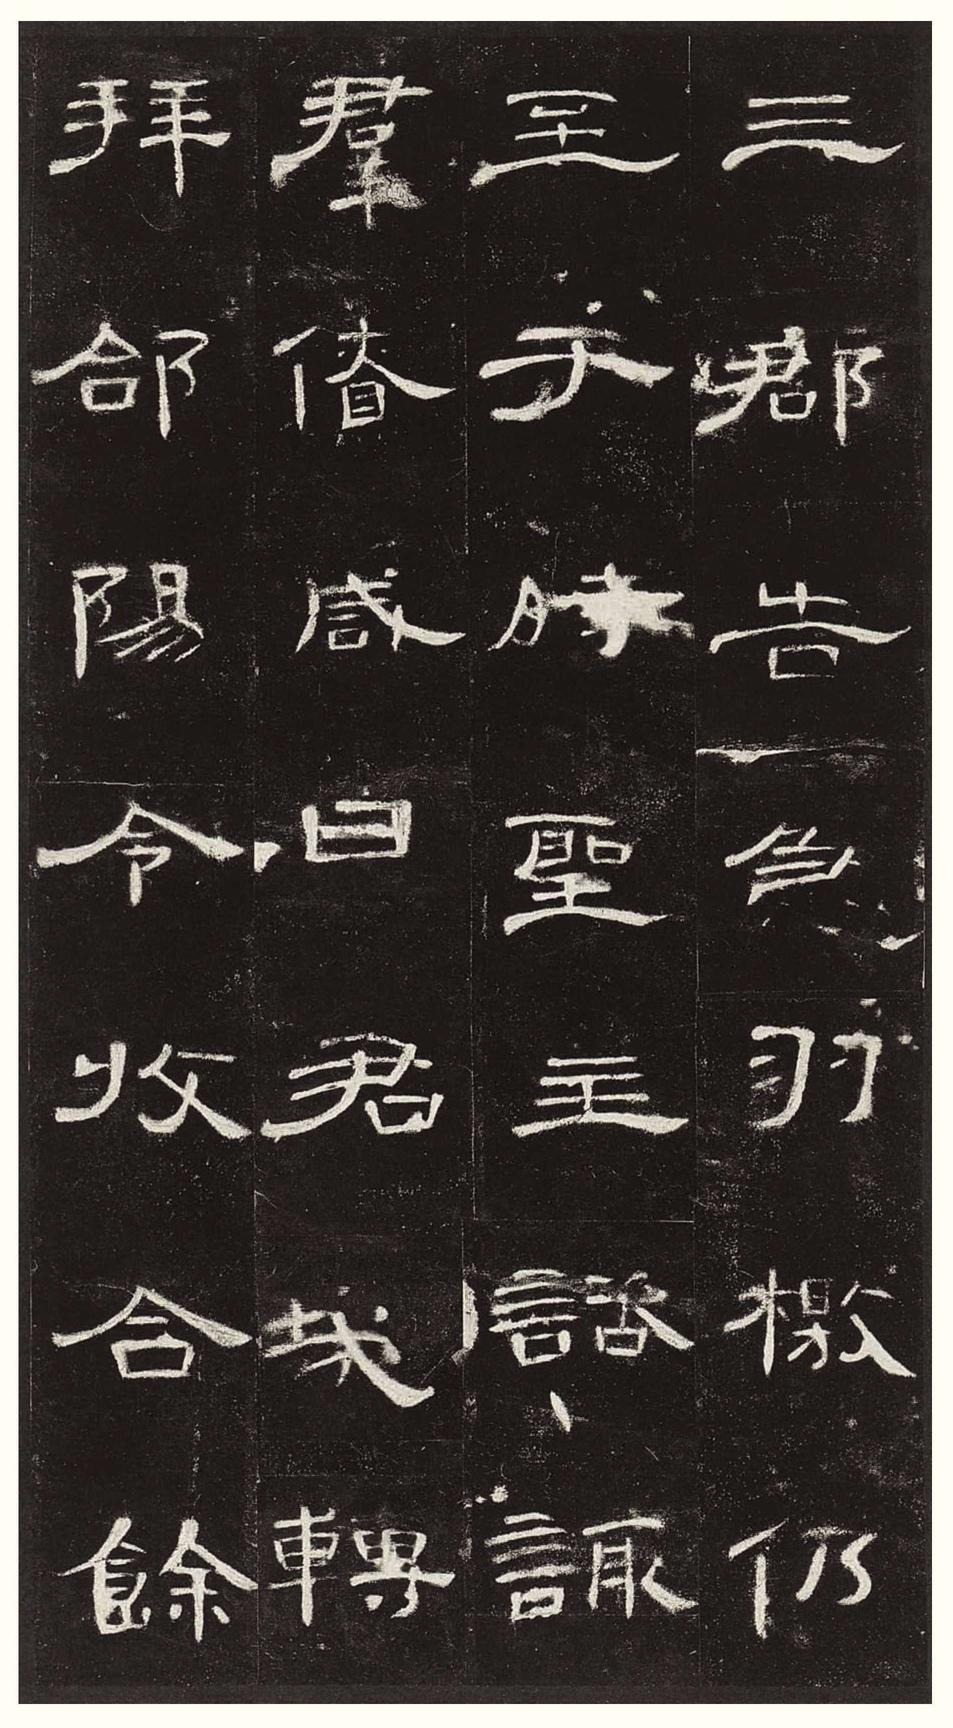 三郡告急羽檄仍
至于時聖主諮諏
羣僚咸曰君哉轉
拜郃陽令收合餘